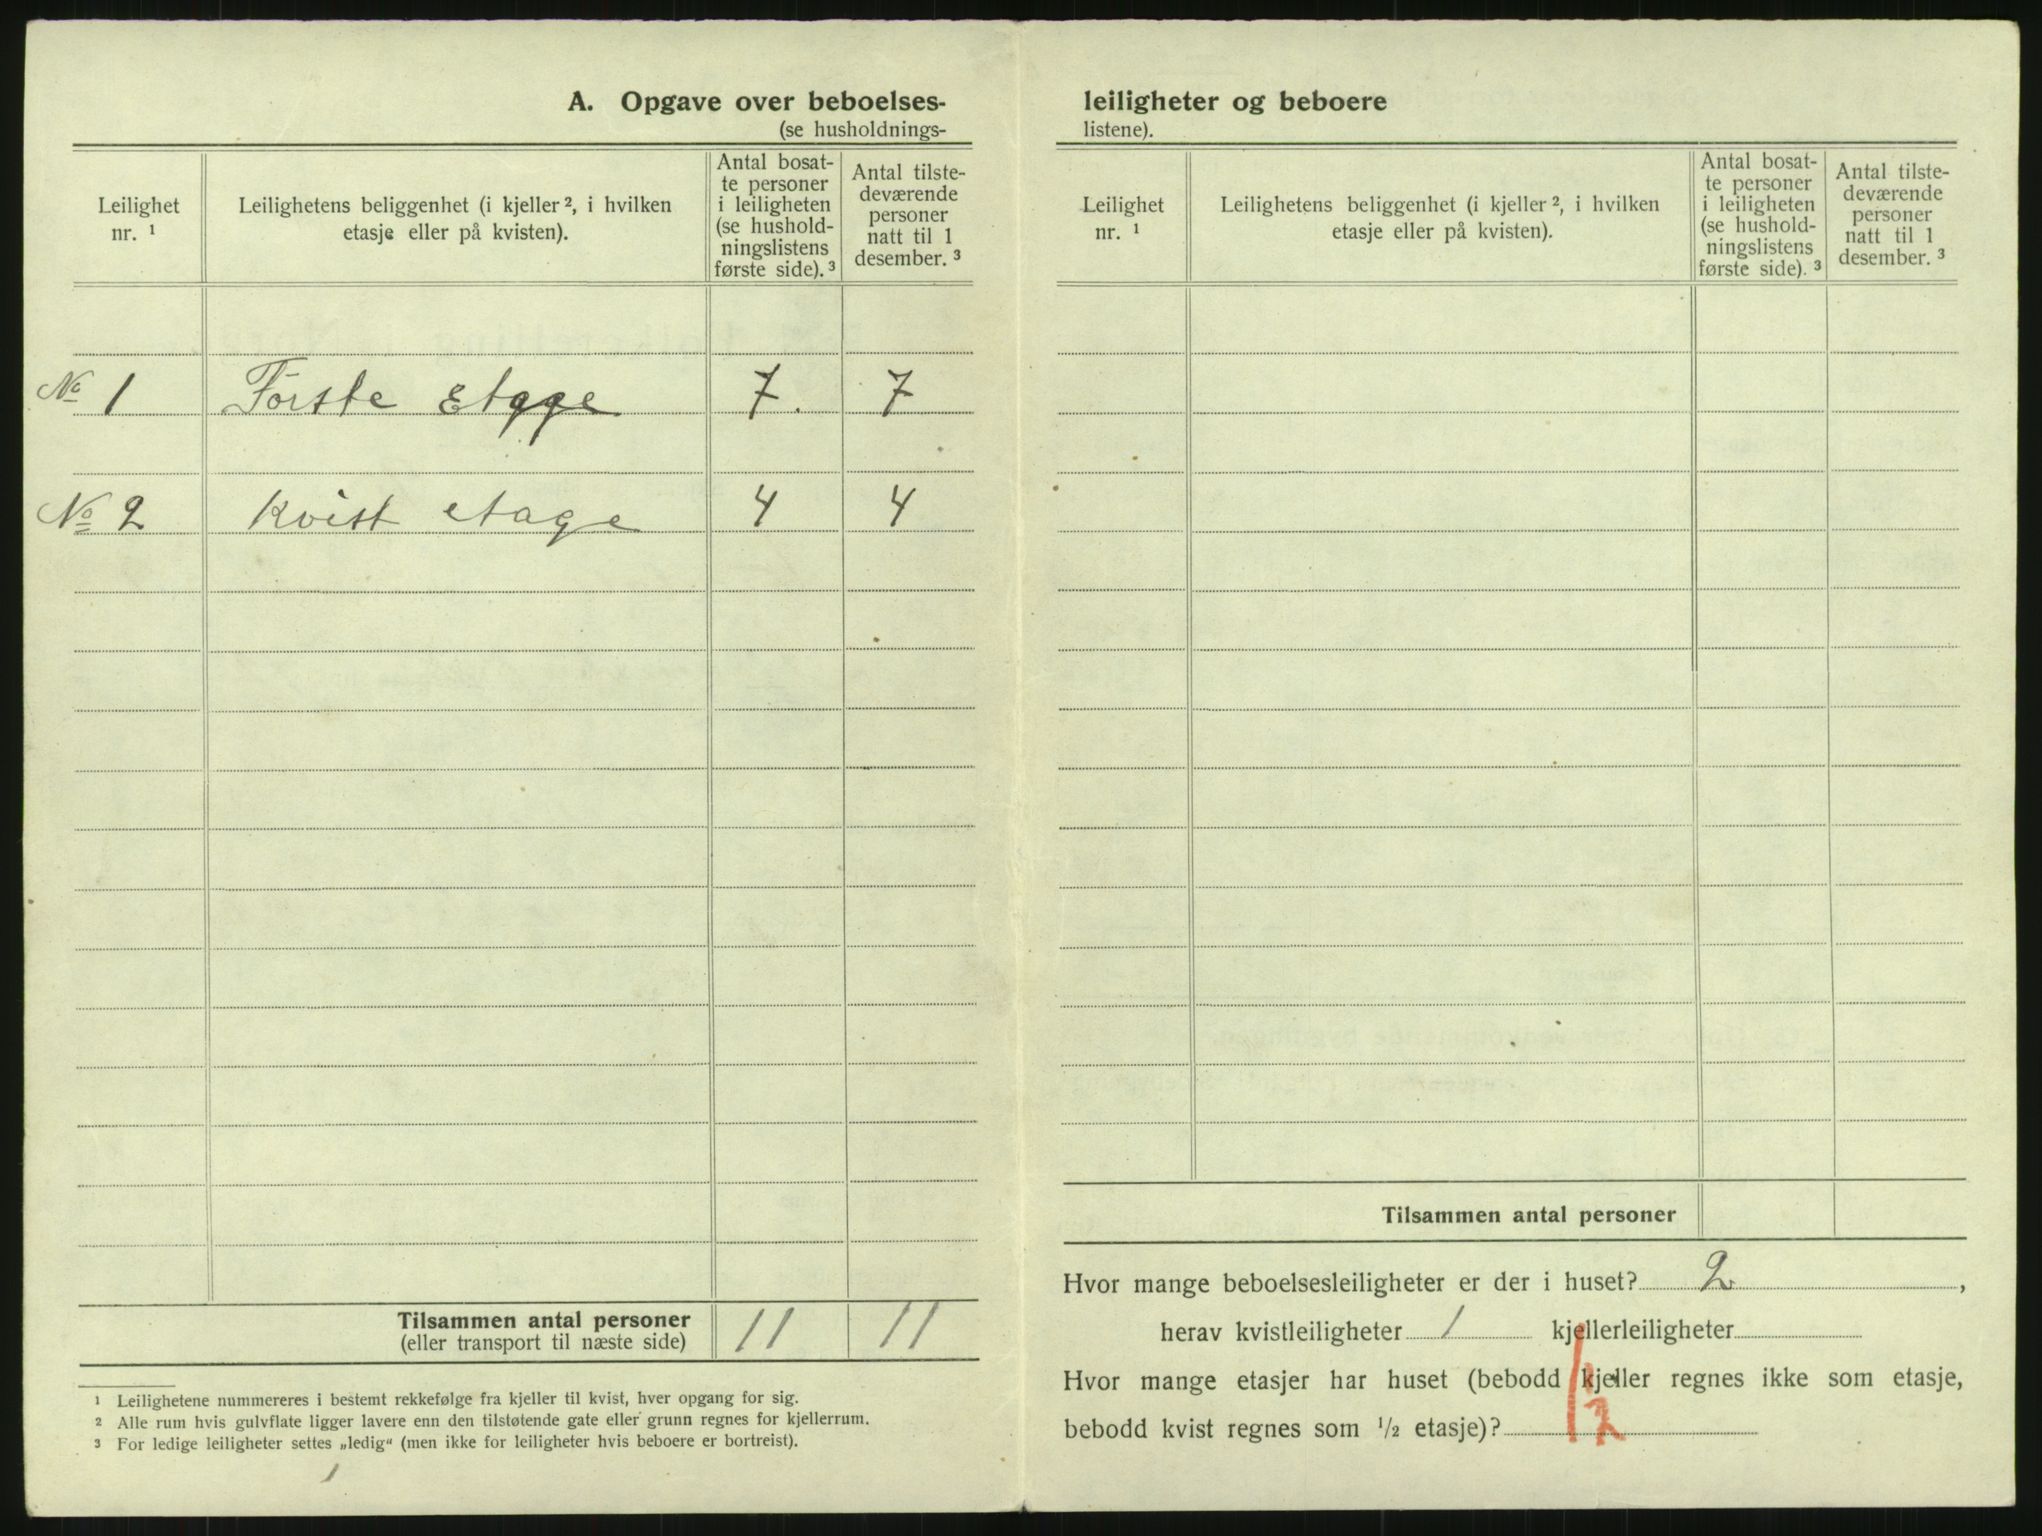 A. Opgave over beboelses-
(se husholdnings-
Leilighet
nr. ¹
Leilighetens beliggenhet (i kjeller ², i hvilken
etasje eller på kvisten).
Antal bosat-
te personer
i leiligheten
(se hushold-
ningslistens
første side). ³
Antal tilste-
deværende
personer
natt til 1
desember. ³
No 1 Förste Etage 7. 7
No 2 Kvist etage 4 4
Tilsammen antal personer 11 11
(eller transport til næste side)
¹ Leilighetene nummereres i bestemt rekkefølge fra kjeller til kvist, hver opgang for sig.
² Alle rum hvis gulvflate ligger lavere enn den tilstøtende gate eller grunn regnes for kjellerrum.
³ For ledige leiligheter settes „ledig“ (men ikke for leiligheter hvis beboere er bortreist).
leiligheter og beboere
listene).
Leilighet
nr. ¹
Leilighetens beliggenhet (i kjeller ², i hvilken
etasje eller på kvisten).
Antal bosat-
te personer
i leiligheten
(se hushold-
ningslistens
første side). ³
Antal tilste-
deværende
personer
natt til 1
desember. ³
Tilsammen antal personer
Hvor mange beboelsesleiligheter er der i huset? 2,
herav kvistleiligheter 1 kjellerleiligheter
Hvor mange etasjer har huset (bebodd kjeller regnes ikke som etasje,
bebodd kvist regnes som ½ etasje)?